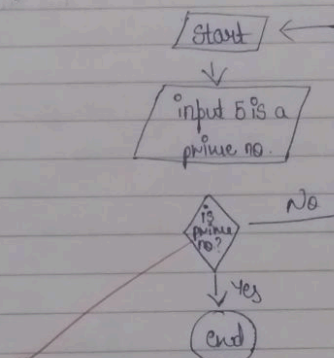 Start
input 5 is a
prime no.
is
prime
no?
No
Yes
end